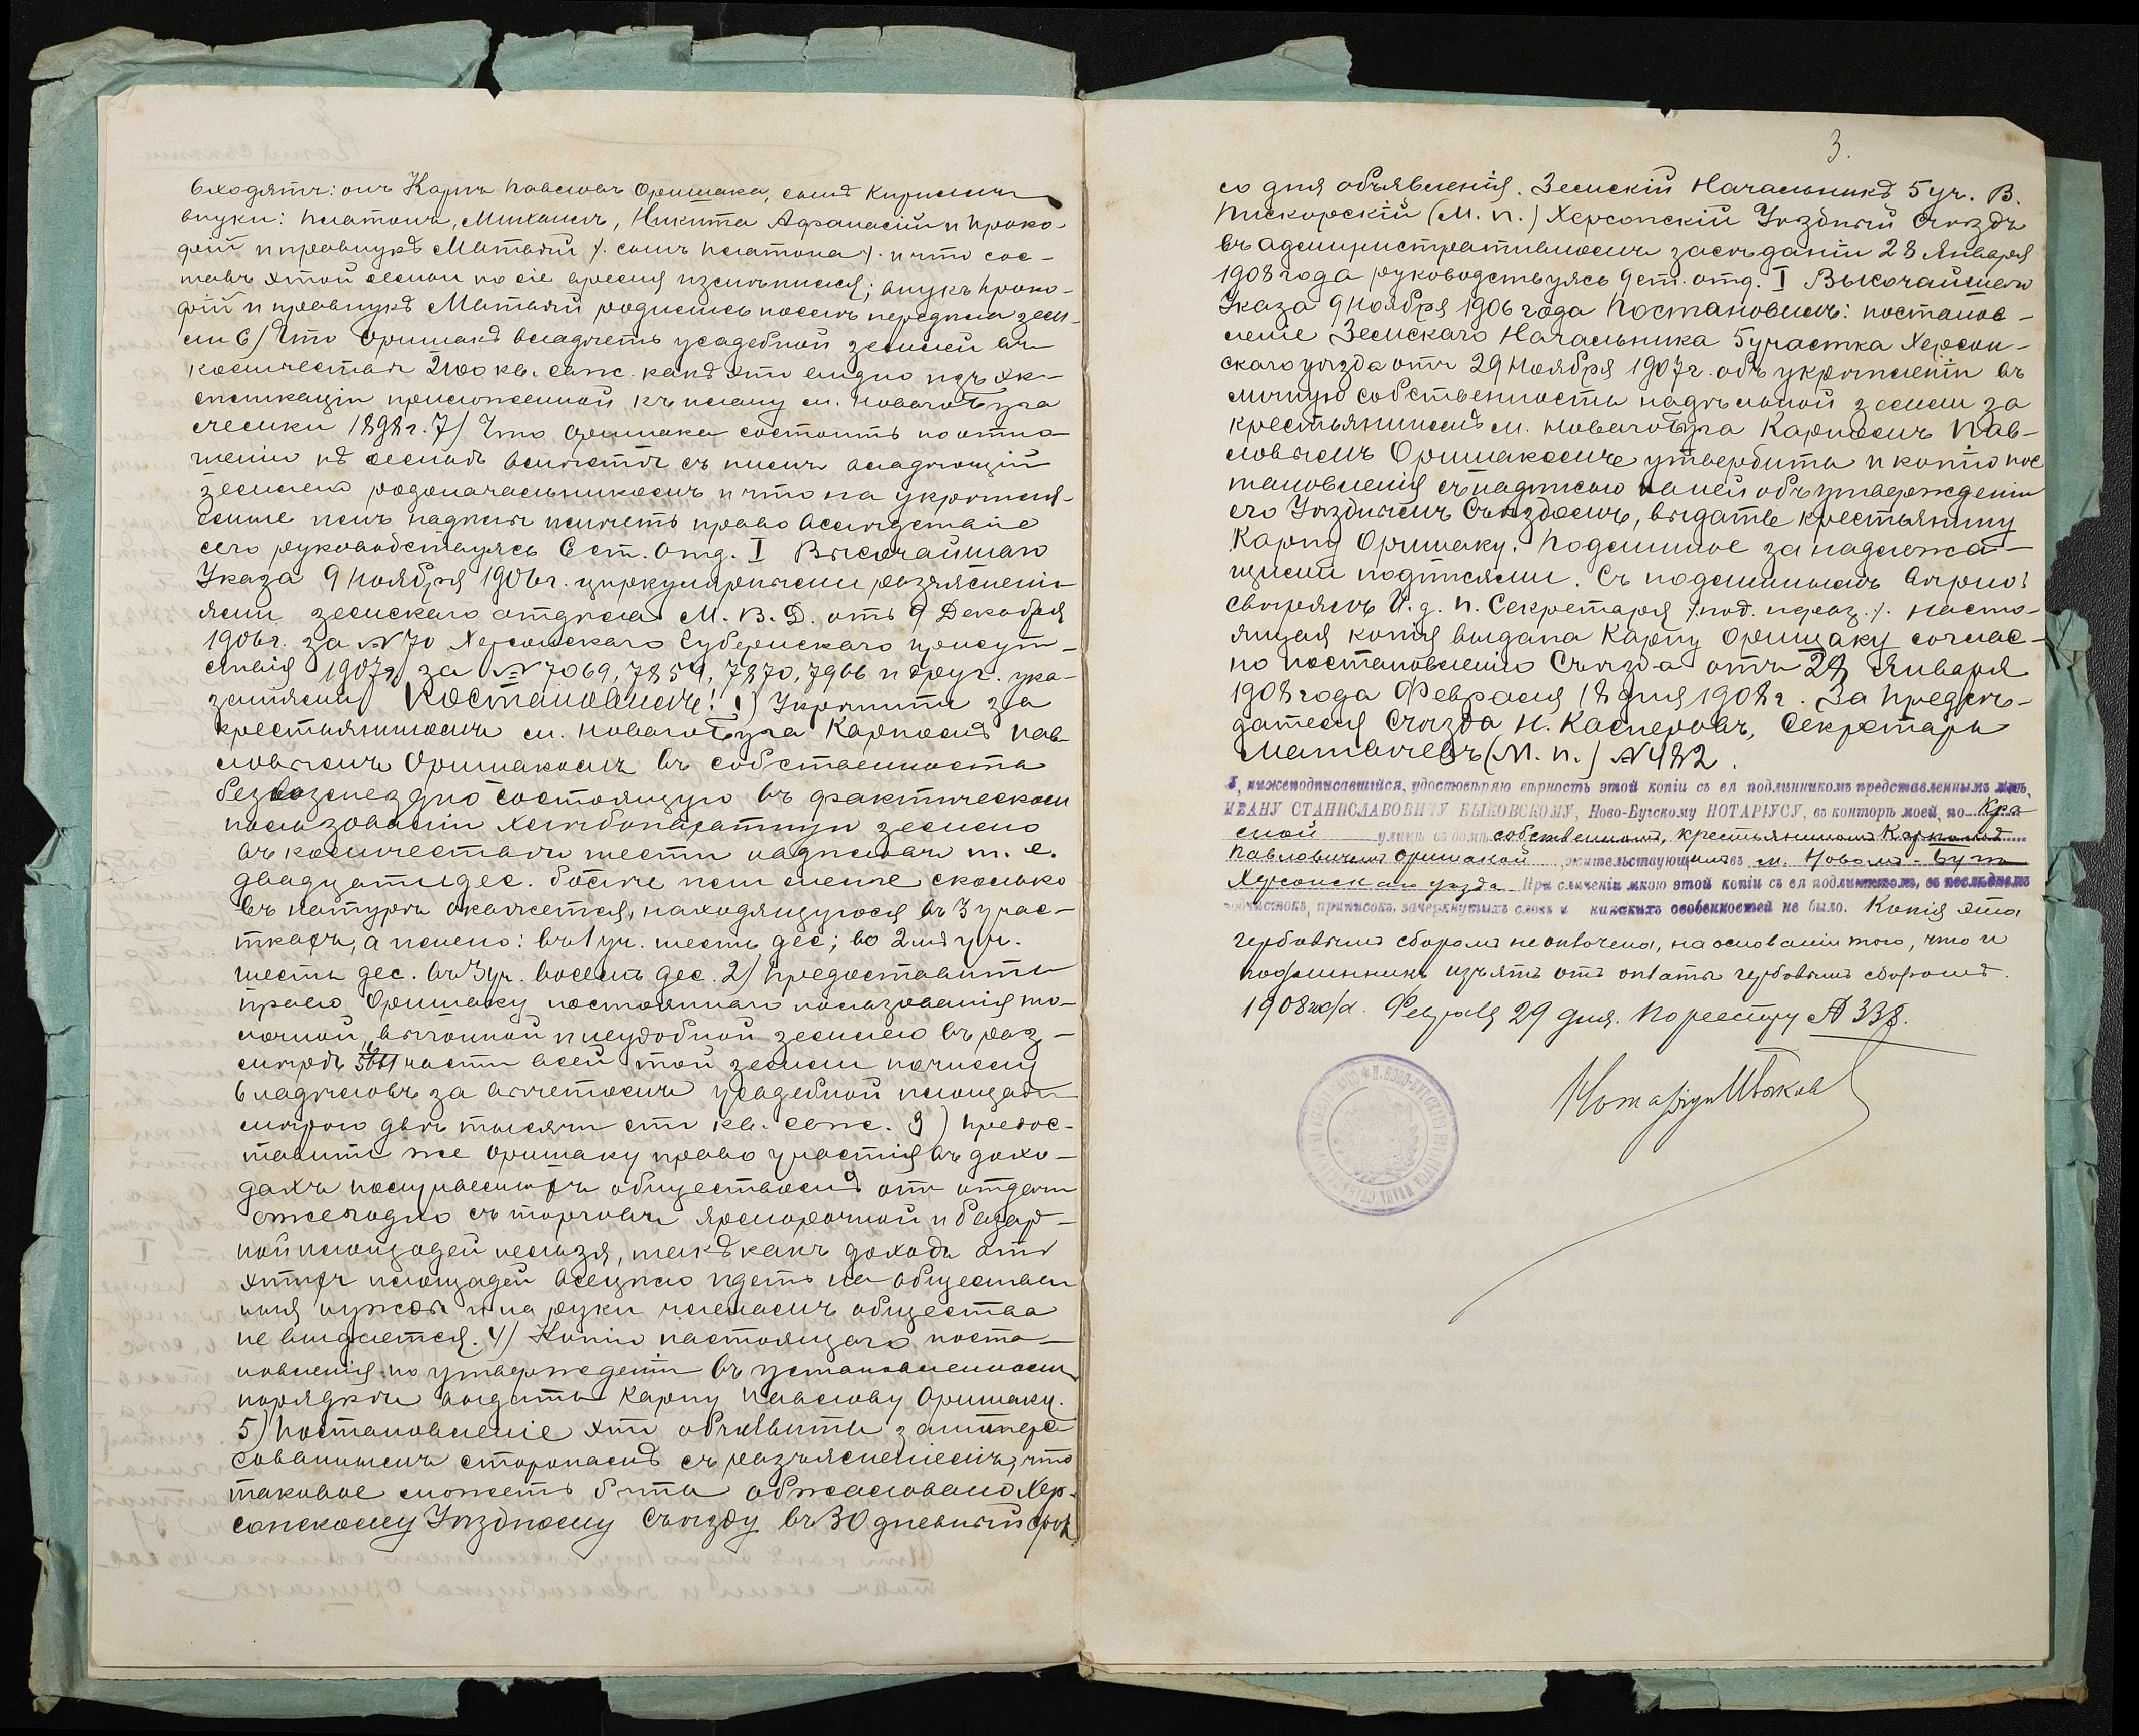 входятъ: онъ Карпъ Павловъ Оришака, сынъ Кириллъ
внуки: Платонъ, Михаилъ, Никита Афанасій и Проко-
фій и правнукъ Матвѣй /. сынъ Платона /. и что сос-
тавъ этой семьи по сіе время измѣнился; внукъ Проко-
фій и правнукъ Матвѣй родились послѣ передѣла зем-
ли 6) Что Оришакъ владѣетъ усадебной землей въ
количествѣ 2100 кв. саж. какъ это видно изъ эк-
спликаціи приложенной къ плану м. Новаго Буга
съемки 1898 г. 7) Что Оришака состоитъ по отно-
шенію къ семьѣ вмѣстѣ съ нимъ владѣющій
землею родоначальникомъ и что на укрѣпля-
емые имъ надѣлы имѣетъ право вслѣдствіе
сего руководствуясь 6 ст. Отд. I Высочайшаго
Указа 9 Ноября 1906 г. циркулярными разъяснені-
ями земскаго отдѣла М. В. Д. отъ 9 Декабря
1906 г. за № 70 Херсонскаго Губернскаго присут-
ствія 1907 г. за № 7069, 7854, 7870, 7966 и друг. ука-
заніями Постановилъ: 1) Укрѣпить за
крестьяниномъ м. Новаго Буга Карпомъ Пав-
ловымъ Оришакомъ въ собственность
безвозмездно состоящую въ фактическомъ
пользованіи хлѣбопахатную землю
въ количествѣ шести надѣловъ т. е.
двадцать дес. болѣе или менѣе сколько
въ натурѣ окажется, находящуюся въ 3 учас-
ткахъ, а именно: въ 1 уч. шесть дес; во 2мъ уч.
шесть дес. въ 3 уч. восемь дес. 2) Предоставить
право Оришаку постояннаго пользованія то-
лочной, выгонной и неудобной землею въ раз-
мѣрѣ части всей той земли по числу
владѣловъ за вычетомъ усадебной площади
мѣрою двѣ тысячи сто кв. саж. 3) Предос-
тавить же Оришаку право участія въ дохо-
дахъ получаемыхъ обществомъ отъ отдачи
ежегодно съ торговъ ярморочной и базар-
ной площадей нельзя, такъ какъ доходъ отъ
этихъ площадей всецѣло идетъ на обществен
ныя нужды и на руки членамъ общества
не выдается. 4) Копію настоящаго поста-
новленія по утвержденіи въ установленномъ
порядкѣ выдать Карпу Павлову Оришаку.
5) Постановленіе это объявить заинтере
сованнымъ сторонамъ съ разъясненіемъ, что
таковое можетъ быть обжаловано Хер-
сонскому Уѣздному Съѣзду въ 30 дневный срок
3.
со дня объявленія. Земскій Начальникъ 5 уч. В.
Пискорскій (М. п.) Херсонскій Уѣздный Съѣздъ
въ административномъ засѣданіи 28 Января
1908 года руководствуясь 9 ст. отд. I Высочайшаго
Указа 9 Ноября 1906 года Постановилъ: постанов-
леніе Земскаго Начальника 5 участка Херсон-
скаго уѣзда отъ 29 Ноября 1907 г. объ укрѣпленіи въ
личную собственность надѣльной земли за
крестьяниномъ м. Новаго Буга Карпомъ Пав-
ловымъ Оришакомъ утвердить и копію пос
тановленія съ надписью на ней объ утвержденіи
его Уѣзднымъ Съѣздомъ, выдать крестьянину
Карпу Оришаку. Подлинное за надлежа-
щими подписями. Съ подлиннымъ вѣрно:
Свѣрялъ И. д. п. Секретаря /под. нераз. /. Насто-
ящая копія выдана Карпу Оришаку соглас-
но постановленію Съѣзда отъ 28 Января
1908 года Февраля 18 дня 1908 г. За Предсѣ-
дателя Съѣзда Н. Касперовъ, Секретарь
(М. п.) № 482.
Я, нижеподписавшійся, удостовѣряю вѣрность этой копіи съ ея подлинникомъ представленнымъ мнѣ,
ИВАНУ СТАНИСЛАВОВИЧУ БЫКОВСКОМУ, Ново-Бугскому НОТАРІУСУ, въ конторѣ моей, по Кра
сной улицѣ въ домѣ собственномъ, крестьяниномъ Карпомъ
Павловичемъ Оришакой, жительствующимъ въ м. Новомъ-Бугѣ
Херсонскаго уѣзда При сличеніи мною этой копіи съ ея подлинникомъ, въ послѣднемъ
подчистокъ, приписокъ, зачеркнутыхъ словъ и никакихъ особенностей не было. Копія эта
гербовымъ сборомъ не оплочена, на основаніи того, что и
подлинникъ изъятъ отъ оплаты гербовымъ сборомъ.
1908 года. Февраля 29 дня. По реестру № 338.
Нотаріусъ